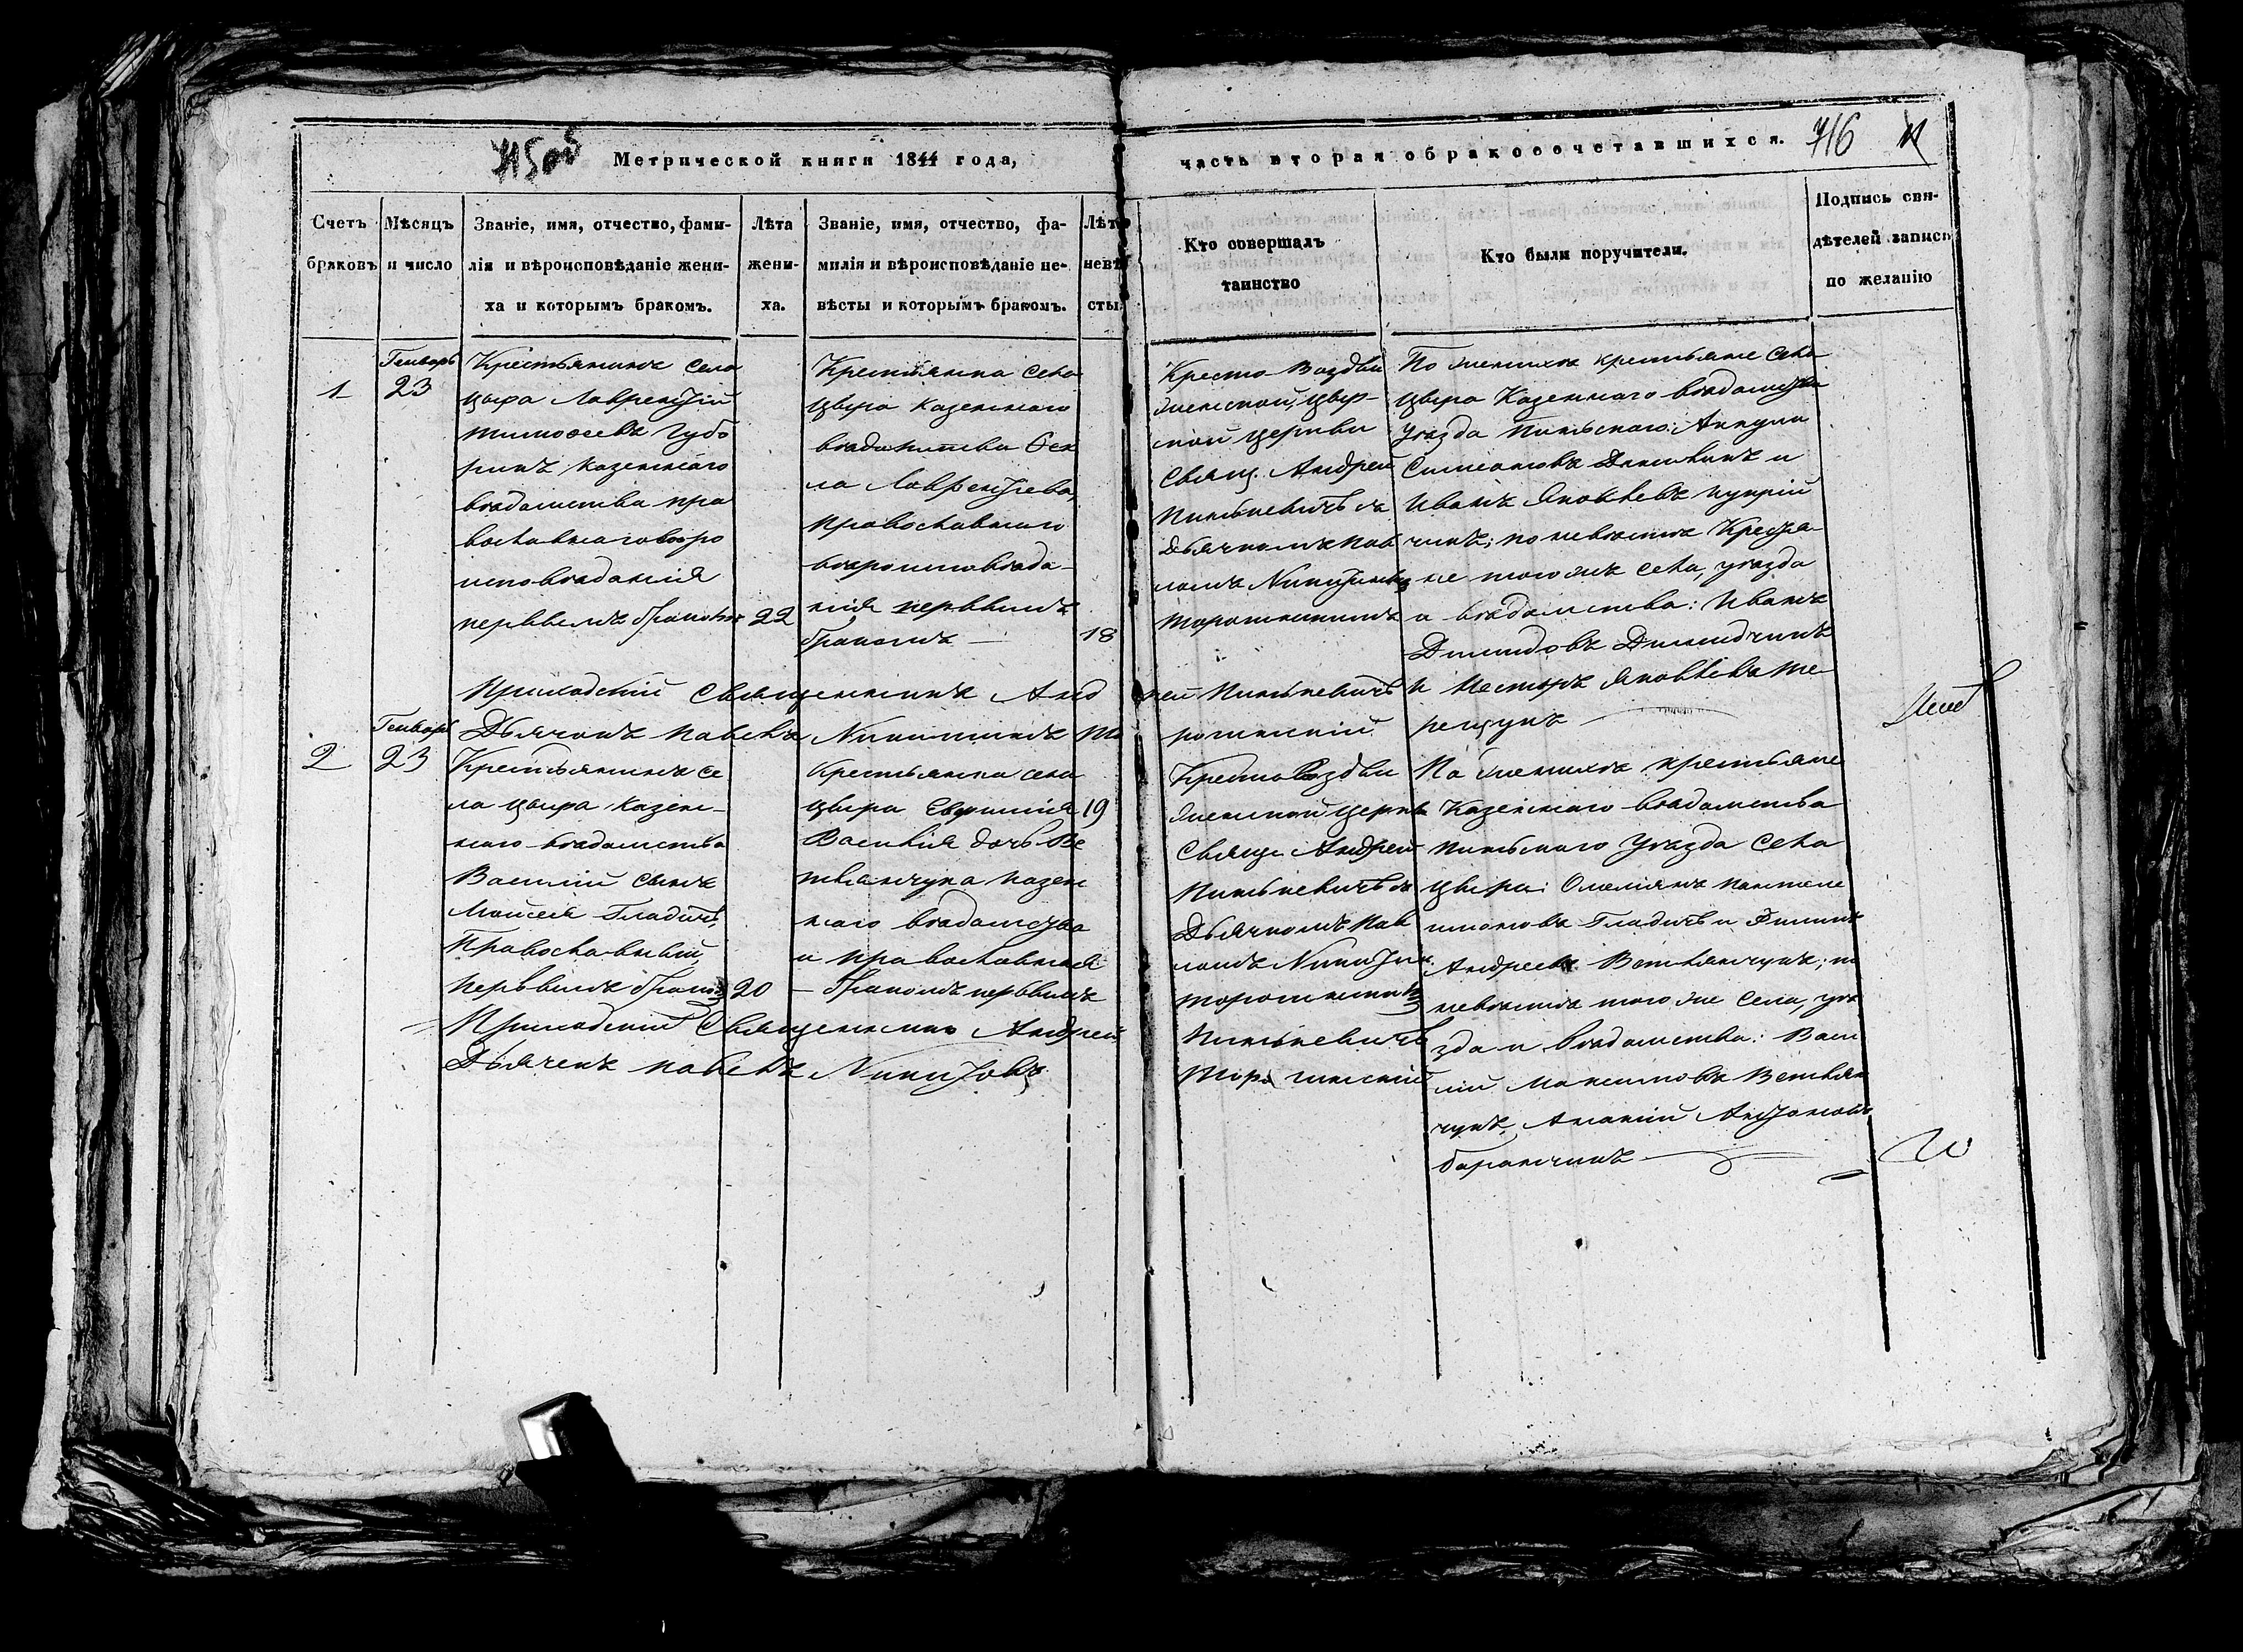 715 об
Метрической книги 1844 года,
часть вторая о бракосочетавшихся.
716
Счетъ браковъ
Мѣсяцъ и число
Званіе, имя, отчество, фами-
лія и вѣроисповѣданіе жени-
ха и которымъ бракомъ.
Лѣта
жени-
ха.
Званіе, имя, отчество, фа-
милія и вѣроисповѣданіе не-
вѣсты и которымъ бракомъ.
Лѣта
невѣ
сты
Кто совершалъ
таинство
Кто были поручители.
Подпись сви-
дѣтелей записи
по желанію
1
Генваръ
23
Крестьянинъ села
цвира Лаврентій
тимофеевъ Губо
ринъ казеннаго
вѣдамства пра
вославнаго вѣро
исповѣданія
первымъ бракомъ
22
Крестьянка села
цвира казеннаго
вѣдамства Фек
ла Лаврентіева,
православнаго
вѣроисповѣда-
нія первымъ
бракомъ —
18
Кресто-Воздви
женской, цвир-
ской церкви
Свящ. Андрей
Пинькевичъ съ
дьячкомъ пав
ломъ
По женихѣ крестьяне села
Цвира Казеннаго вѣдамства
уѣзда Пинскаго:
и
Иванъ Яковлевъ
по невѣстѣ Крестья
не того жъ села, уѣзда
и вѣдамства: Иванъ
и Несторъ Яковлевъ Те
рещукъ
Приходскій Священникъ Анд
рей Пинькевичъ
Дьячокъ павелъ
2
Генваръ
23
Крестьянинъ се
ла цвира казен-
наго вѣдамства
Василій сынъ
Моисея Гладичъ,
Православный,
первымъ бракомъ
20
Крестьянка села
цвира Евфимія
Василія дочь Ве
тлянчука казен
наго вѣдамства
и православная
— бракомъ первымъ
19
Крестовоздви
женской церкви
Свящ. Андрей
Пинькевичъ съ
Дьячкомъ Пав
ломъ
По женихѣ крестьяне
Казеннаго вѣдамства
пинскаго уѣзда села
Цвира: Омелянъ пантеле
имоновъ Гладичъ и Филипъ
Андреевъ Ветлянчукъ; по
невѣстѣ того же села, уѣ
зда и вѣдамства: Васи
лій Максимовъ Ветлян
чукъ, Ананій Антоновъ
баранчукъ
Приходскій Священникъ Андрей
Пинькевичъ
Дьячекъ павелъ